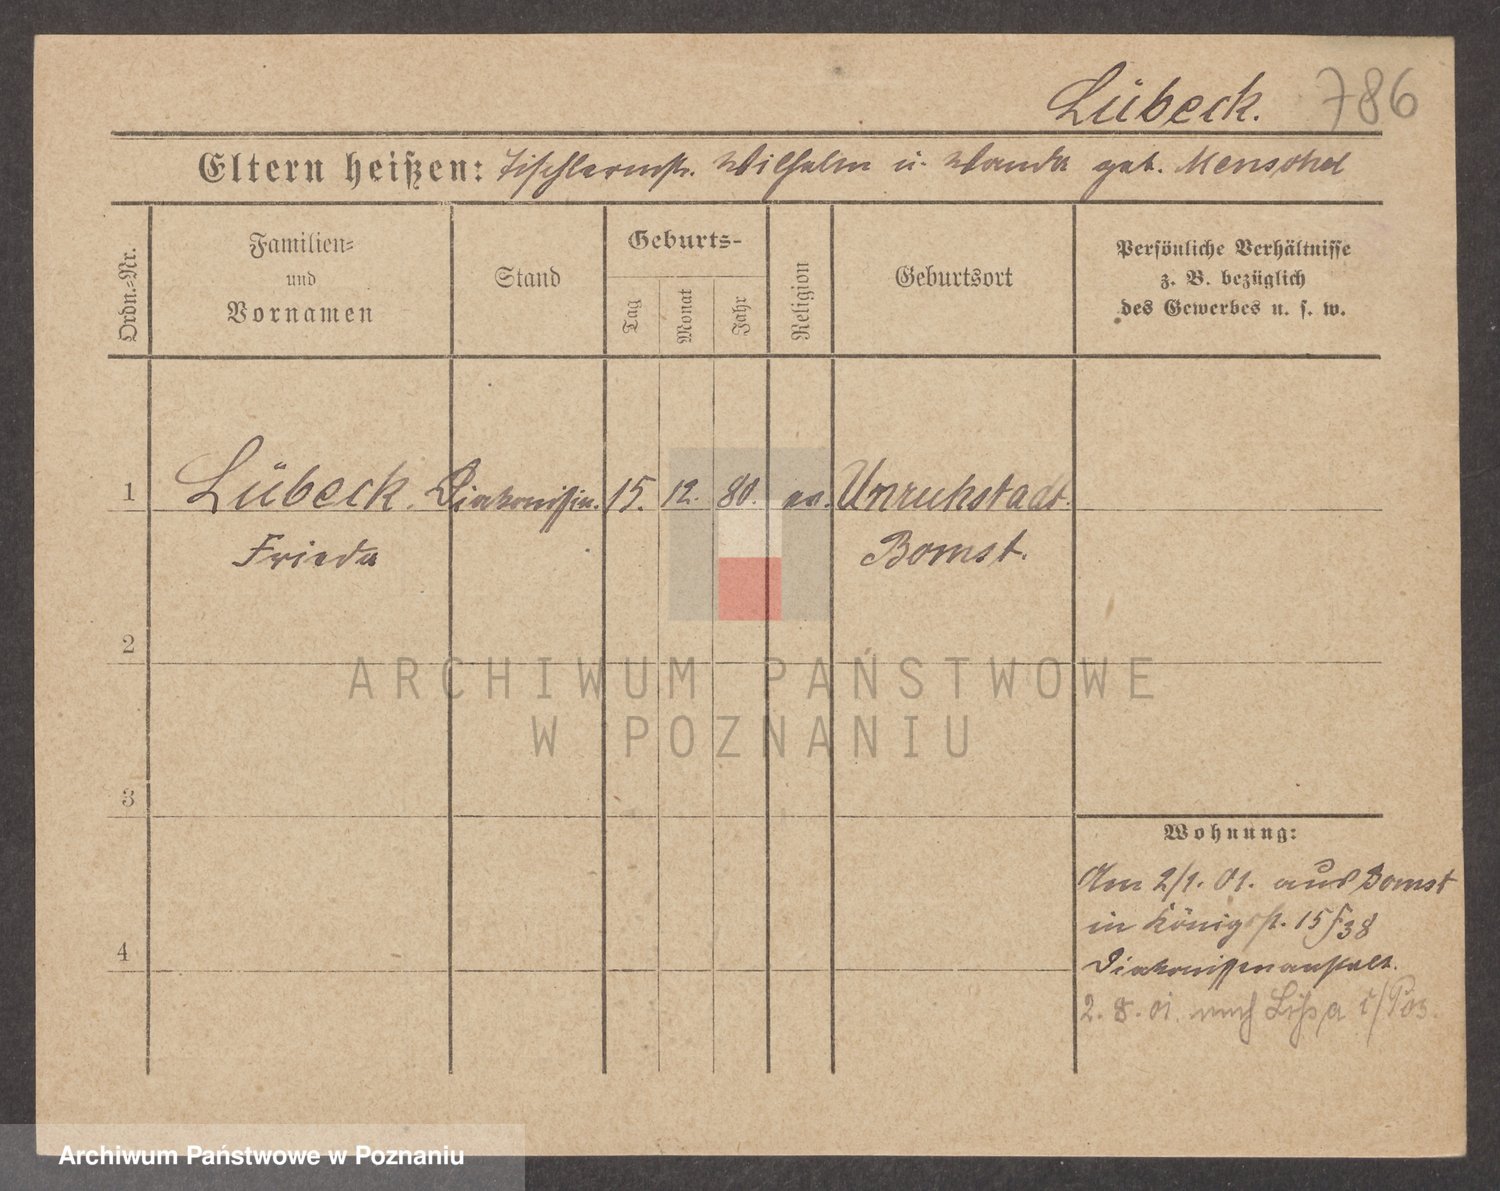 Lübeck. 786
Eltern heißen: Tischlermstr. Wilhelm u. Wanda geb. Menschel
Ordn.=Nr.
Familien=
und
Vornamen
Stand
Geburts-
Tag
Monat
Jahr
Religion
Geburtsort
Persönliche Verhältnisse
z. B. bezüglich
des Gewerbes u. s. w.
1 Lübeck. Diakonissin. 15. 12. 80. ev. Unruhstadt.
Frieda Bomst.
2
3
4
Wohnung:
Am 2/1. 01. aus Bomst
in Königstr. 15/38
Diakonissenanstalt.
2. 8. 01. nach Lissa i/Pos.
ARCHIWUM PAŃSTWOWE
W POZNANIU
Archiwum Państwowe w Poznaniu